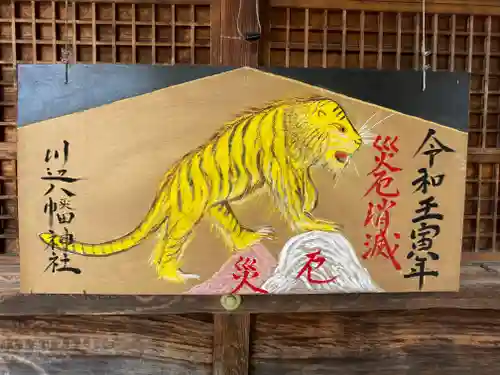 令和壬寅年
災厄消滅
災
厄
川辺八幡神社